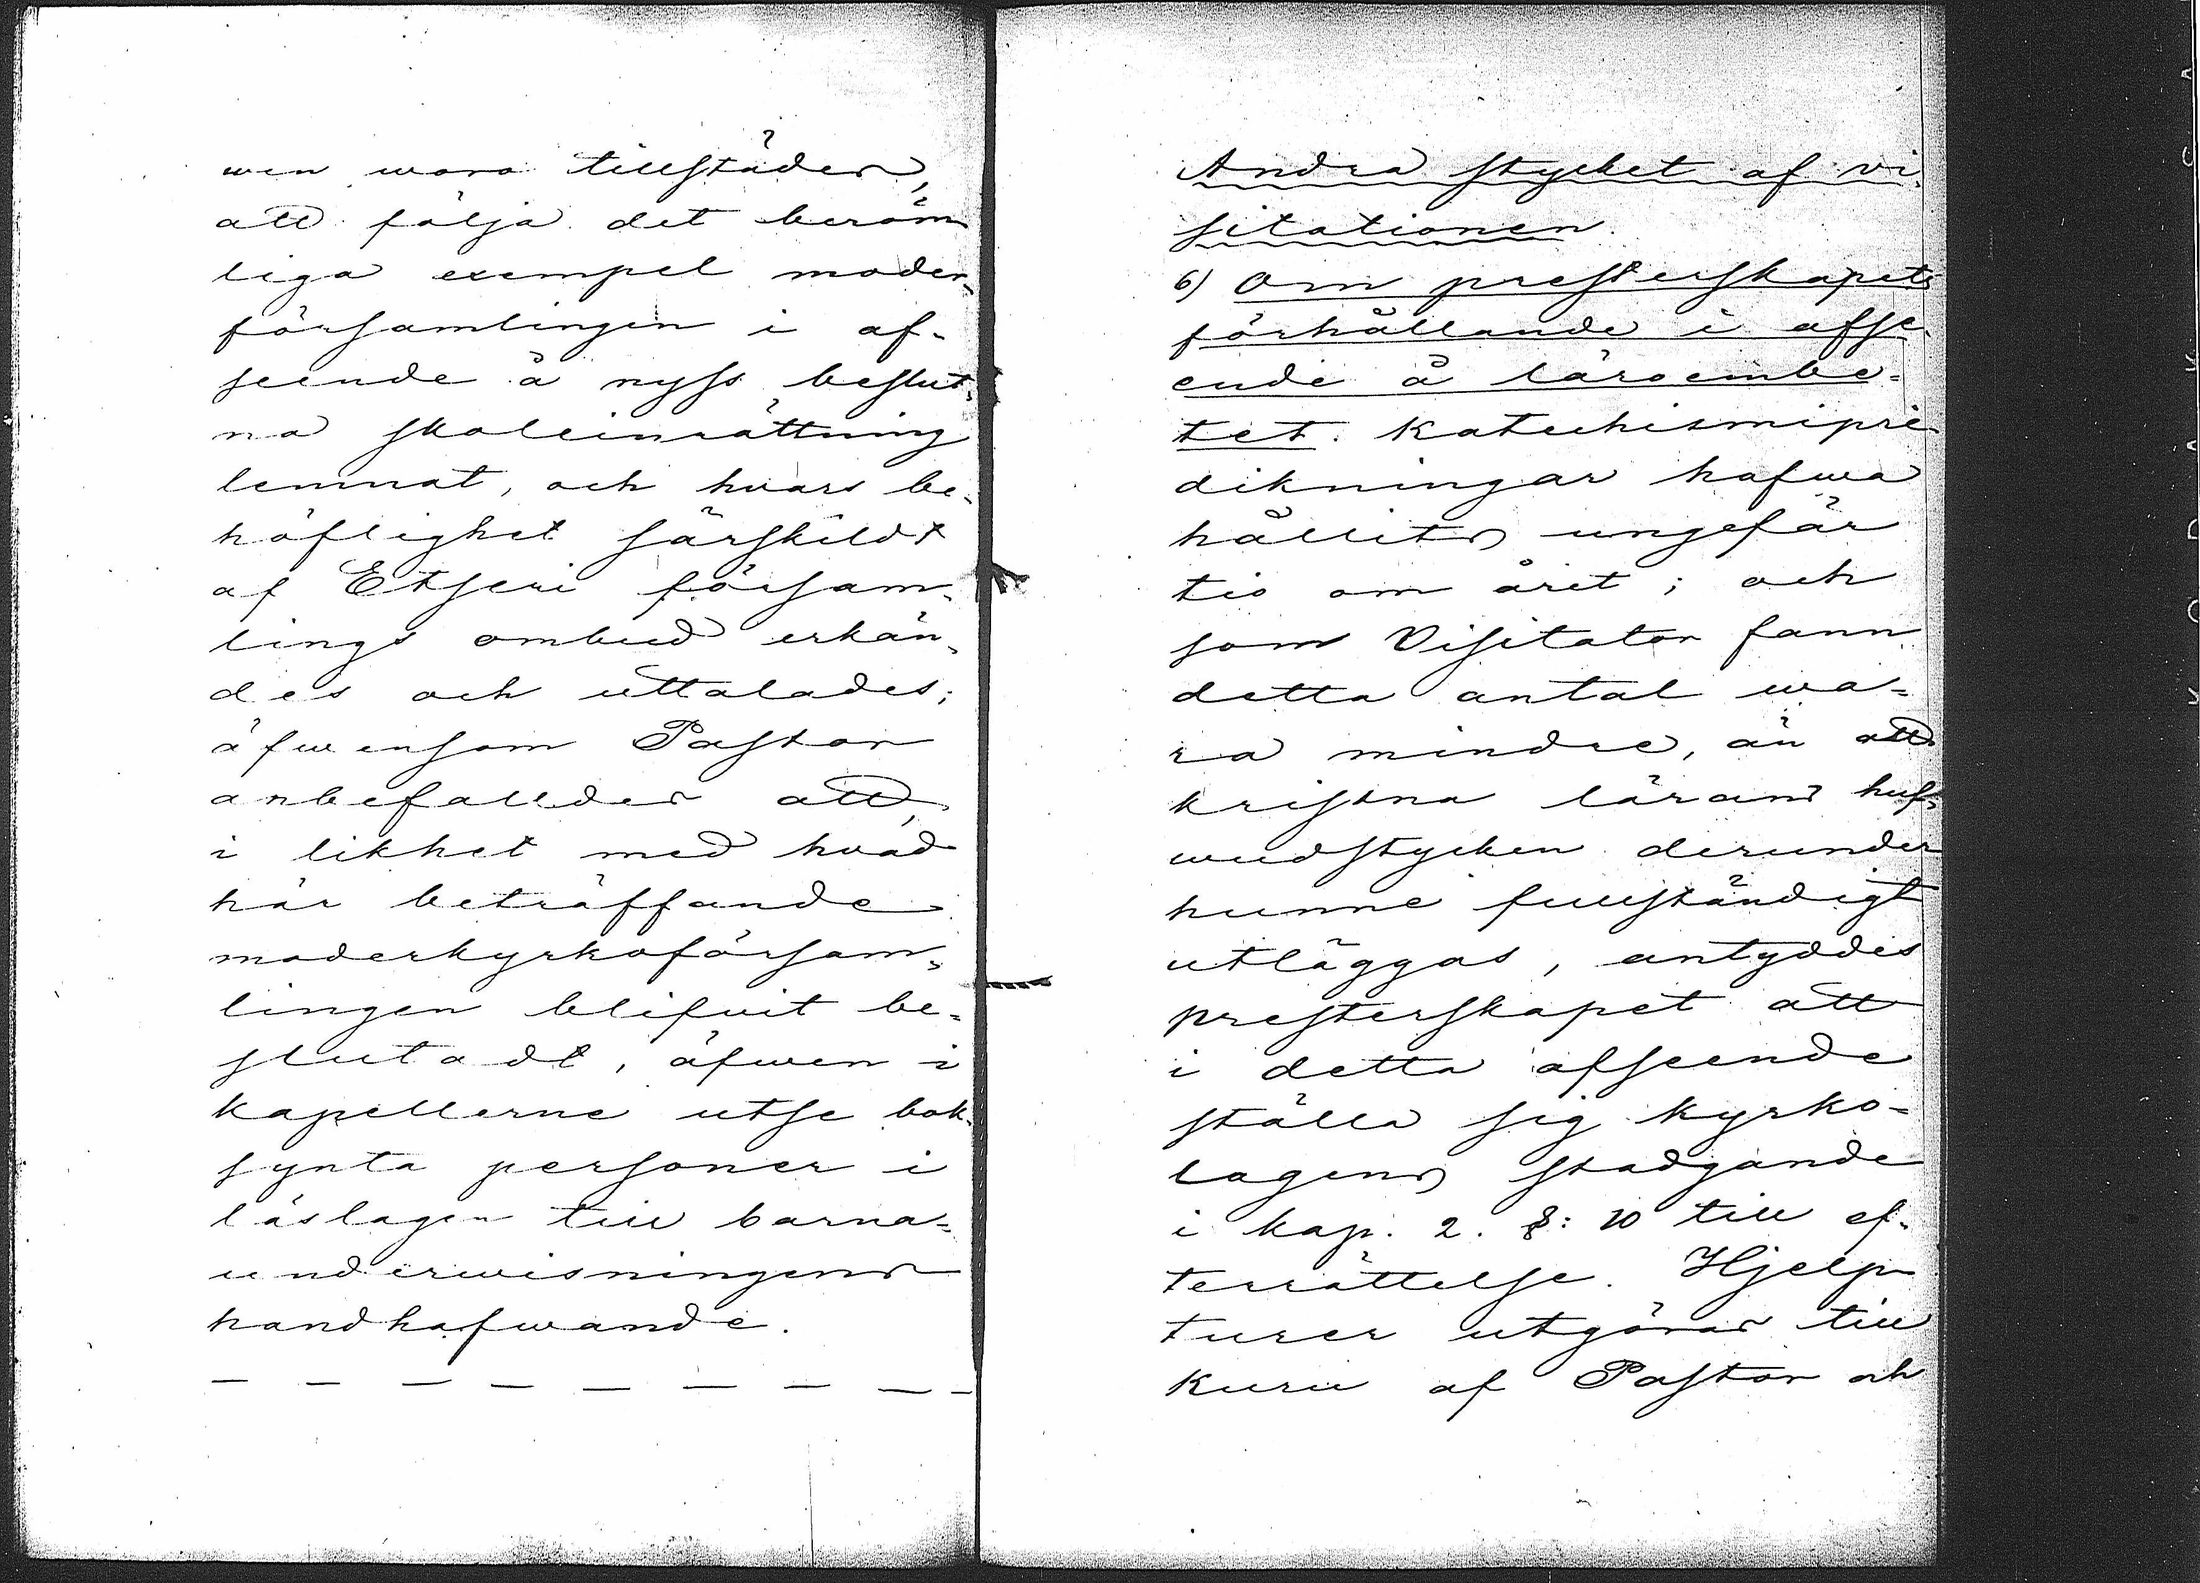 wen wara tillstädes,
att följa det beröm
liga exempel moder-
församlingen i af-
seende å nyss beslut-
na skoleinrättning
lemnat, och hvars be-
höflighet särskildt
af Etseri försam-
lings ombud erkän-
des och uttalades;
äfwensom Pastor
anbefalldes att,
i likhet med hvad
här beträffande
moderkyrkoförsam-
lingen blifvit be-
slutadt, äfwen i
kapellerne utse bok-
synta personer i
läslagen till barna-
underwisningens
handhafwande.
— — — — — — — — —
Andra stycket af vi-
sitationen.
6) Om presterskapets
förhållande i afse-
ende å läroembe-
tet. Katechismipre-
dikningar hafwa
hållits ungefär
tio om året; och
som Visitator fann
detta antal wa-
ra mindre, än att
kristna lärans huf-
wudstycken derunder
hunne fullständigt
utläggas, antyddes
presterskapet att
i detta afseende
ställa sig kyrko-
lagens stadgande
i kap. 2. §: 10 till ef-
terrättelse. Hjelp
turer utgöras till
Kuru af Pastor och